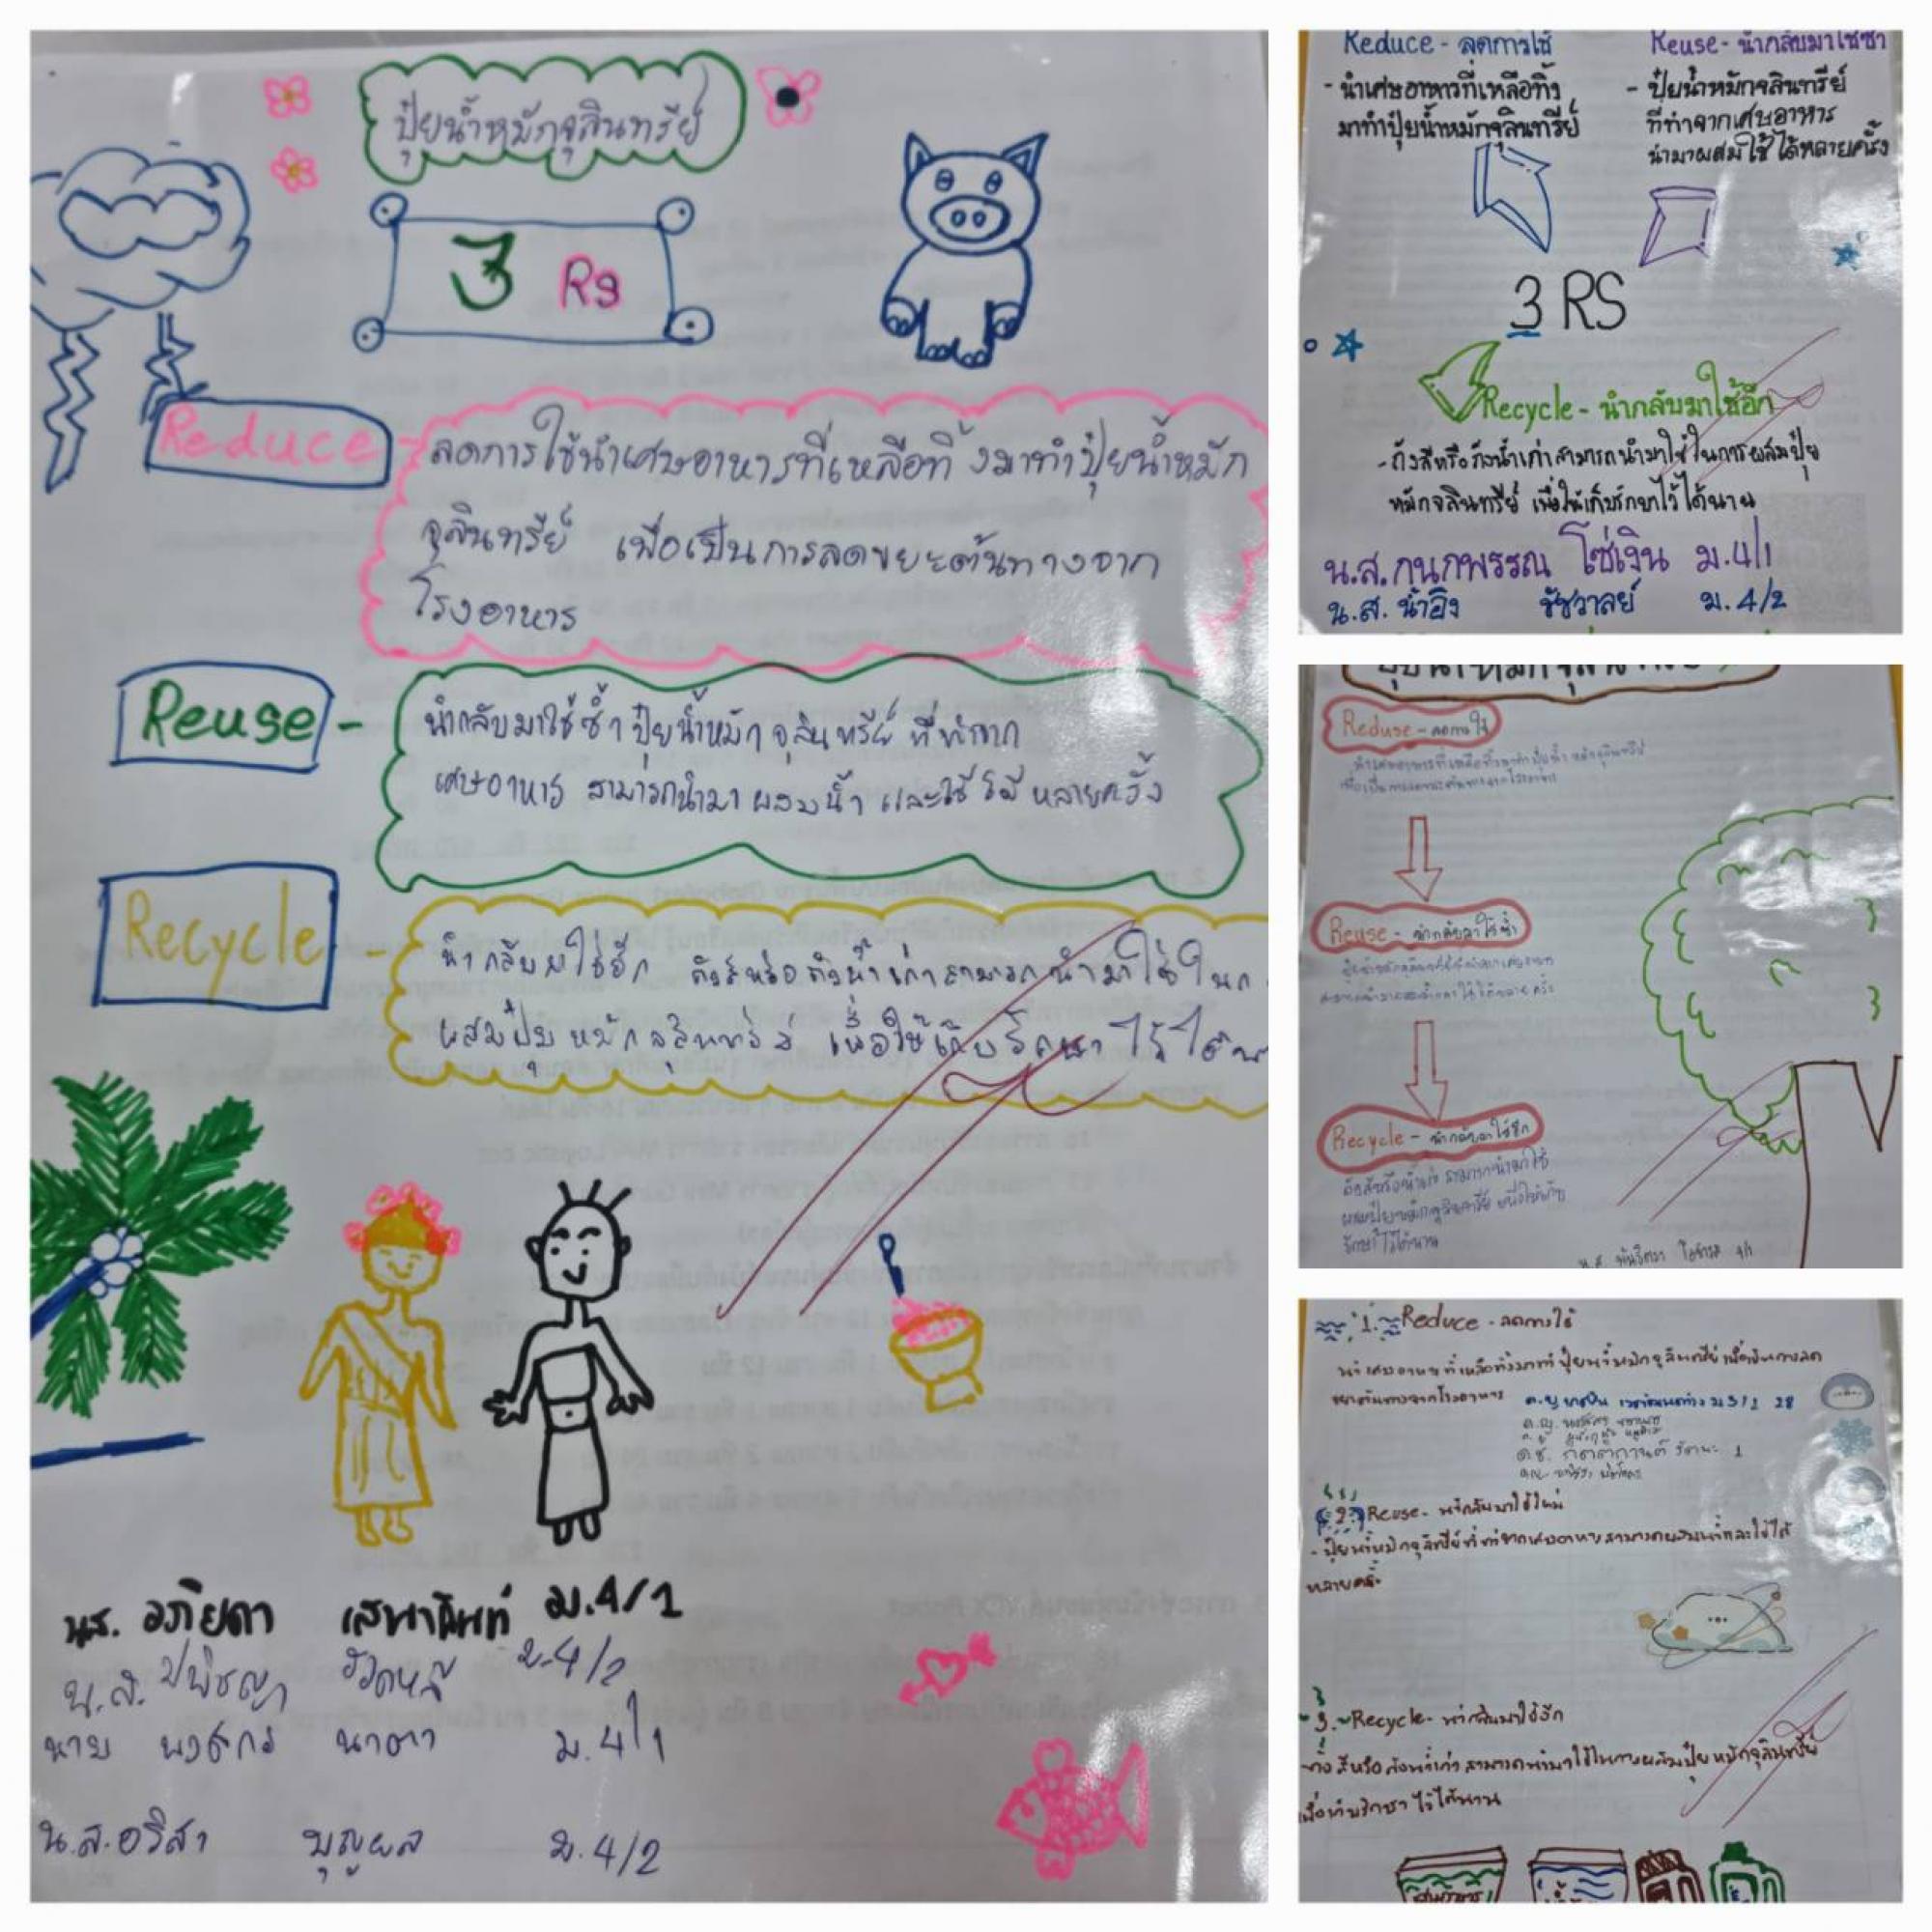 ปุ๋ยน้ำหมักจุลินทรีย์
3 Rs
Reduce -
ลดการใช้นำเศษอาหารที่เหลือทิ้งมาทำปุ๋ยน้ำหมัก
จุลินทรีย์ เพื่อเป็นการลดขยะต้นทางจาก
โรงอาหาร
Reuse -
นำกลับมาใช้ซ้ำ ปุ๋ยน้ำหมักจุลินทรีย์ ที่ทำจาก
เศษอาหาร สามารถนำมาผสมน้ำ และใช้ได้หลายครั้ง
Recycle -
นำกลับมาใช้อีก ถังสีหรือถังน้ำเก่าสามารถนำมาใช้ในก
ผสมปุ๋ยหมักจุลินทรีย์ เพื่อให้เก็บรักษาไว้ได้น
นส. ม.4/1
น.ส. ปพิชญา ม.4/2
นาย นาตา ม.4/1
น.ส.อริสา บุญผล ม.4/2
Reduce - ลดการใช้
- นำเศษอาหารที่เหลือทิ้ง
มาทำปุ๋ยน้ำหมักจุลินทรีย์
Reuse - นำกลับมาใช้ซ้ำ
- ปุ๋ยน้ำหมักจลินทรีย์
ที่ทำจากเศษอาหาร
นำมาผสมใช้ได้หลายครั้ง
3 RS
Recycle - นำกลับมาใช้อีก
- ถังสีหรือถังน้ำเก่าสามารถนำมาใช้ในการผสมปุ๋ย
หมักจลินทรีย์ เพื่อให้เก็บรักษาไว้ได้นาน
น.ส.กนกพรรณ โซ่เงิน ม.4/1
น.ส. น้ำอิง ชัชวาลย์ ม.4/2
ปุ๋ยน้ำหมักจุลินทรีย์
Reduse - ลดการใช้
นำเศษอาหารที่เหลือทิ้งมาทำปุ๋ยน้ำหมักจุลินทรีย์
เพื่อเป็นการลดขยะต้นทางจากโรงอาหาร
Reuse - นำกลับมาใช้ซ้ำ
Recycle - นำกลับมาใช้อีก
ถังสีหรือถังน้ำเก่า สามารถนำมาใช้
ผสมปุ๋ยหมักจุลินทรีย์ เพื่อให้เก็บ
รักษาไว้ได้นาน
น.ส. 4/1
1. Reduce - ลดการใช้
นำเศษอาหารที่เหลือทิ้งมาทำปุ๋ยน้ำหมักจุลินทรีย์เพื่อเป็นการลด
ขยะต้นทางจากโรงอาหาร
2. Reuse - นำกลับมาใช้ใหม่
- ปุ๋ยน้ำหมักจุลินทรีย์ที่ทำจากเศษอาหารสามารถผสมน้ำและใช้ได้
หลายครั้ง
3. Recycle - นำกลับมาใช้อีก
ถังสีหรือถังน้ำเก่าสามารถนำมาใช้ในการผสมปุ๋ยหมักจุลินทรีย์
เพื่อเก็บรักษาไว้ได้นาน